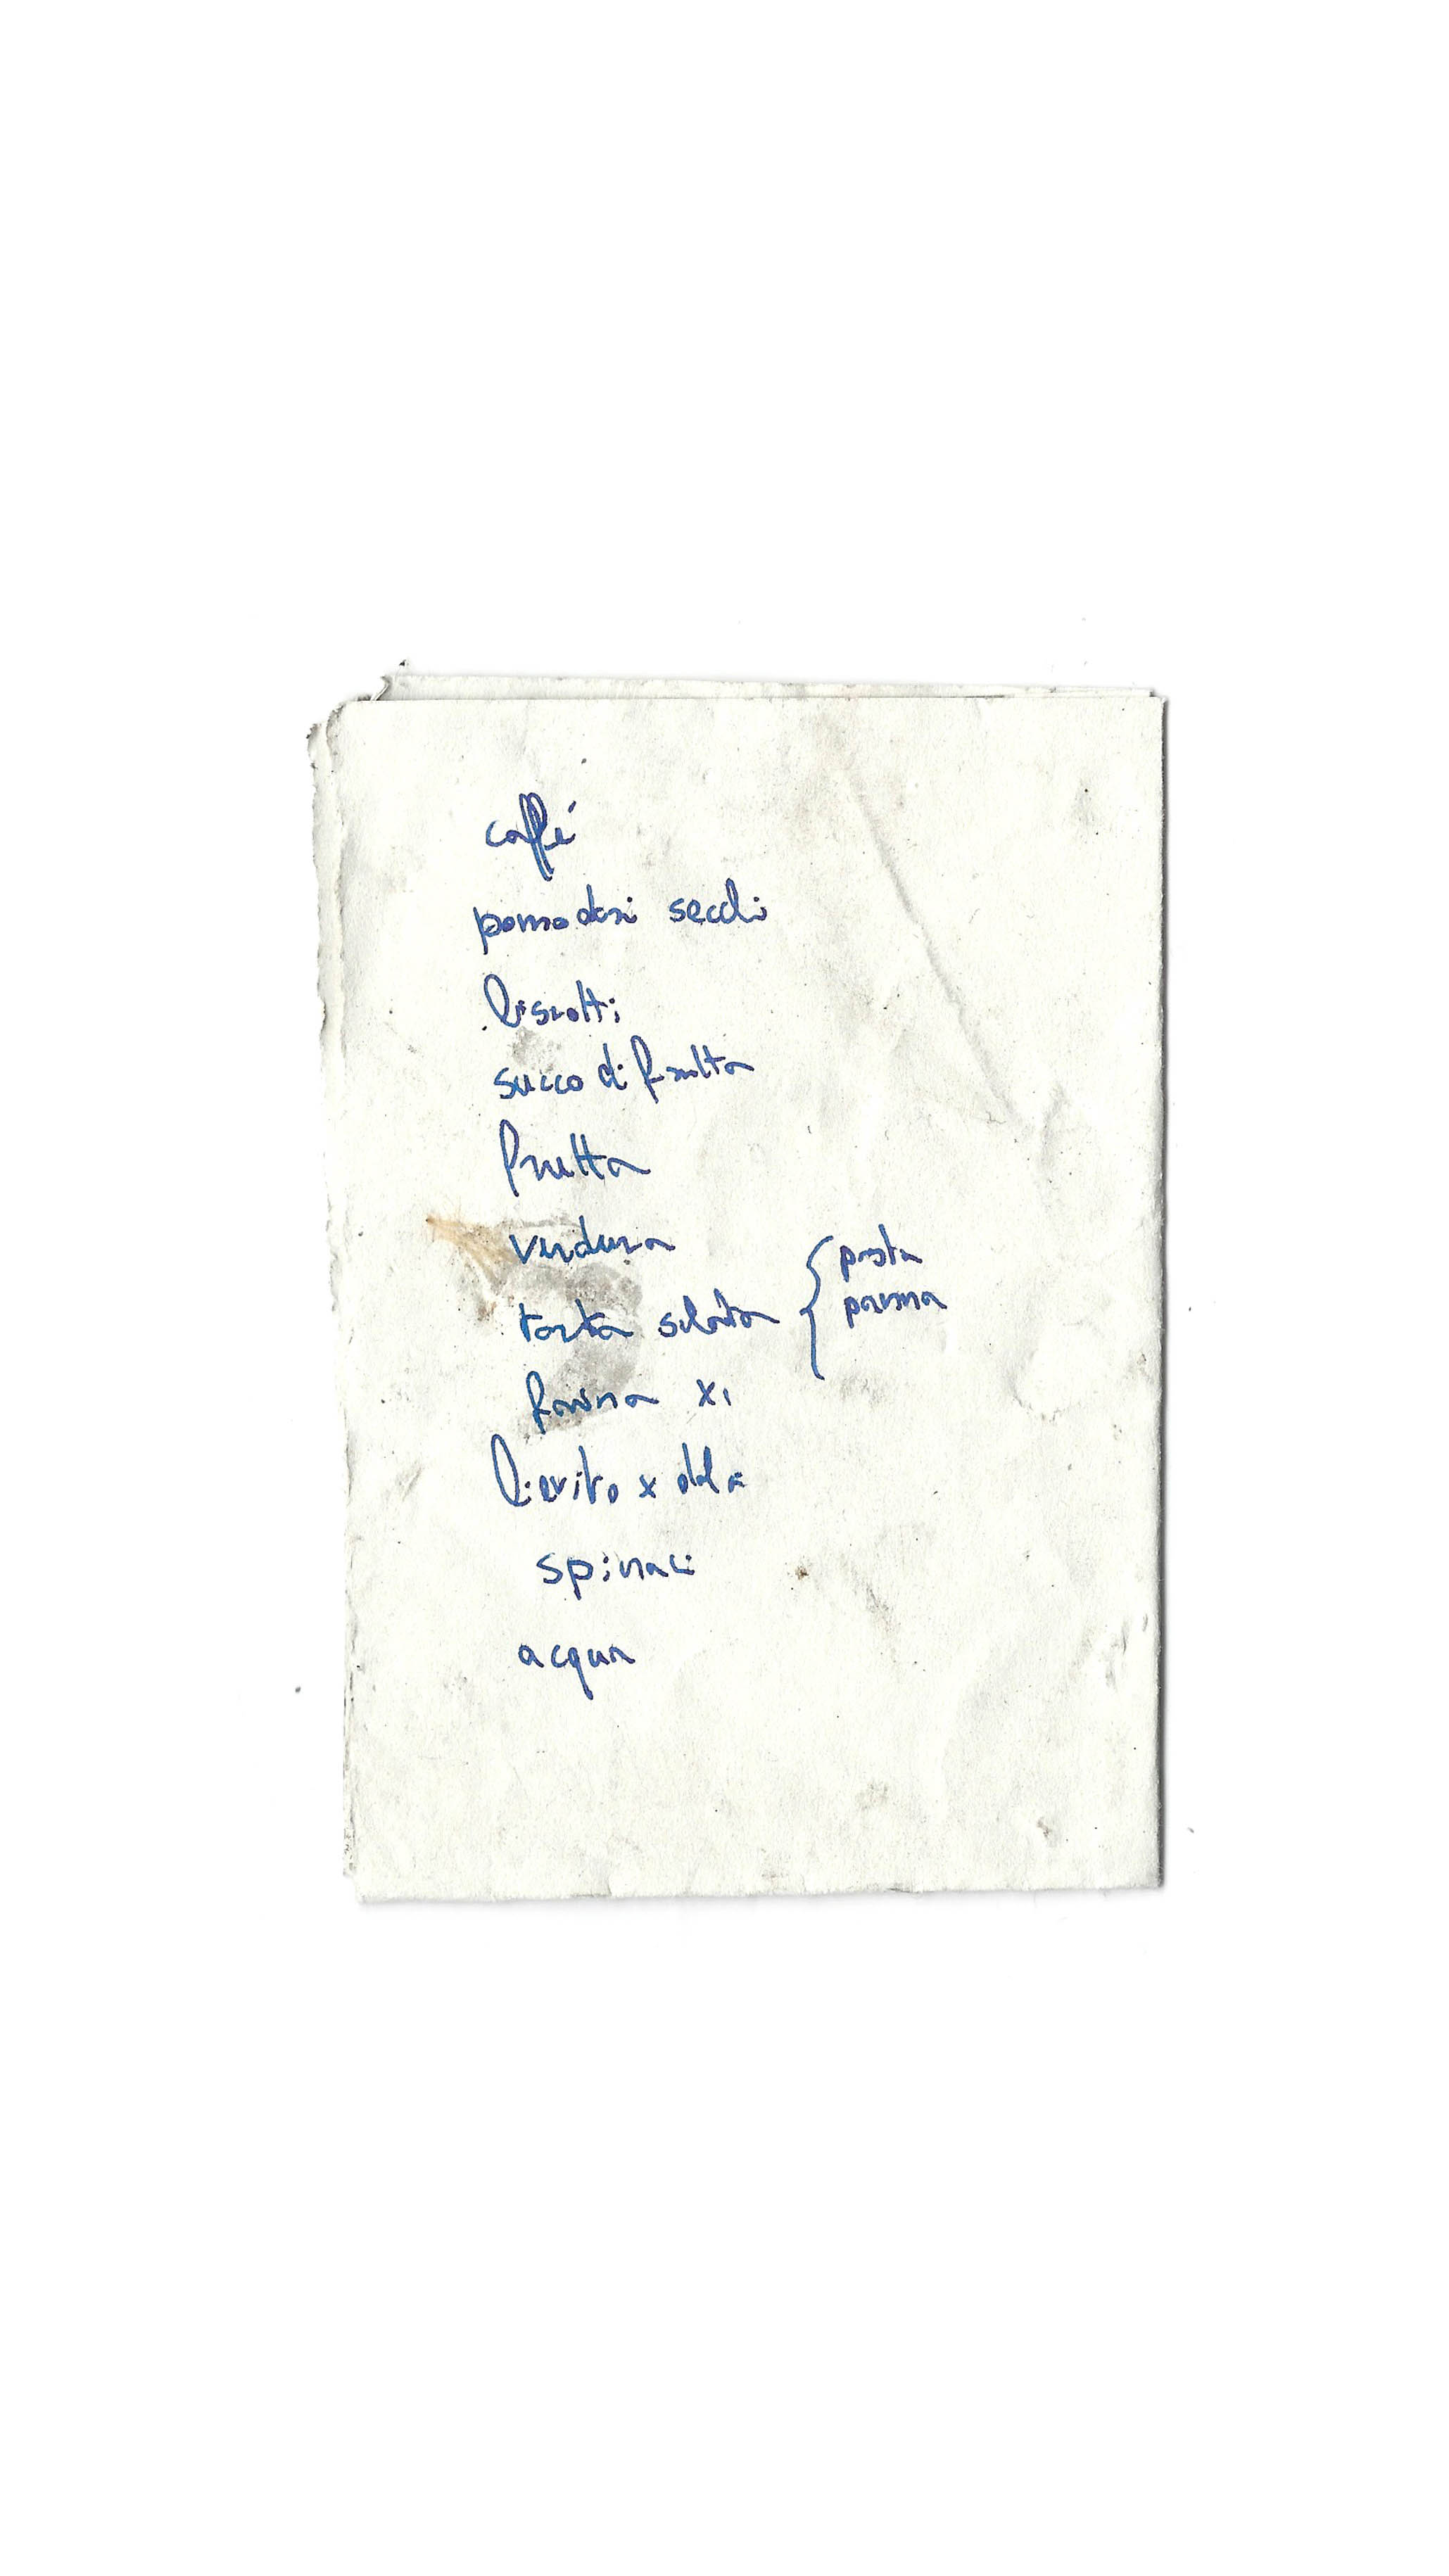 caffé
pomodori secchi
biscotti
succo di frutta
frutta
verdura
torta salata { pasta
panna
farina x1
lievito x
spinaci
acqua